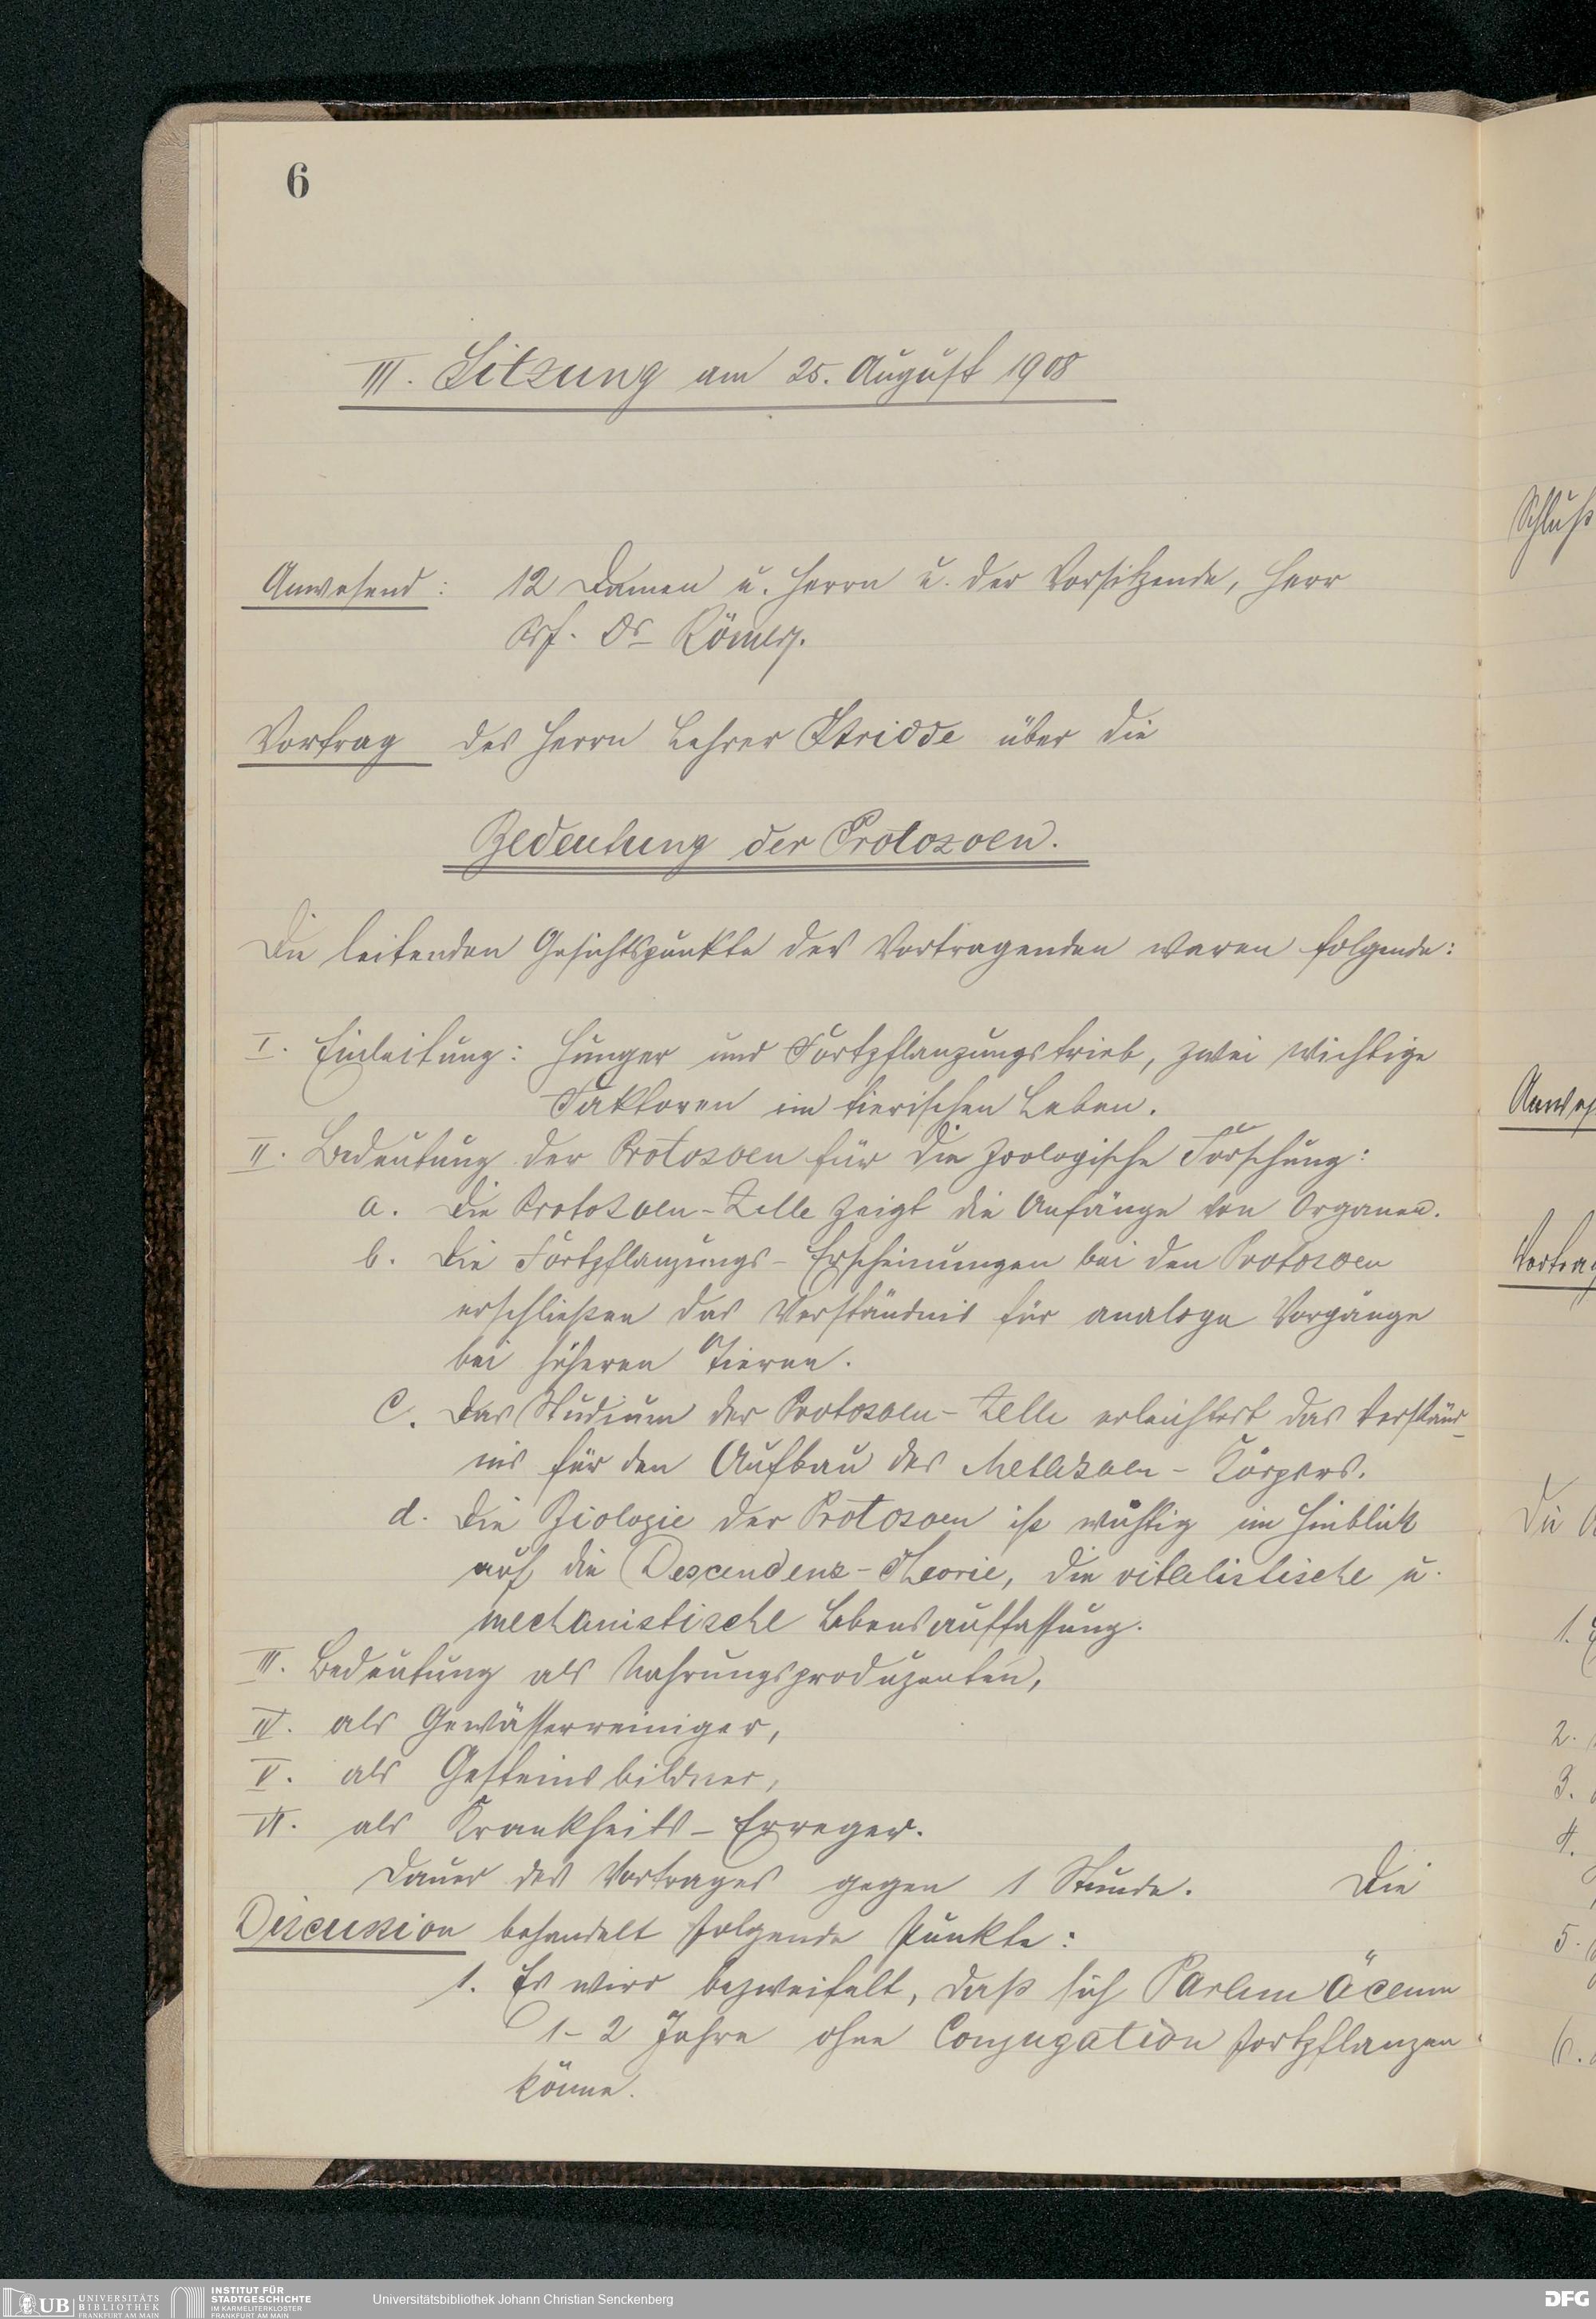 6
III. Sitzung am 25. August 1908
Anwesend: 12 Damen u. Herrn u. der Vorsitzende, Herr
Prf. Dr. Römer.
Vortrag des Herrn Lehrer Stridde über die
Bedeutung der Protozoen.
Die leitenden Gesichtspunkte des Vortragenden waren folgende:
I. Einleitung: Hunger und Fortpflanzungstrieb, zwei wichtige
Faktoren im tierischen Leben.
II. Bedeutung der Protozoen für die zoologische Forschung:
a. Die Protozoen-Zelle zeigt die Anfänge von Organen.
b. Die Fortpflanzungs-Erscheinungen bei den Protozoen
erschließen das Verständnis für analoge Vorgänge
bei höheren Tieren.
c. Das Studium der Protozoen-Zelle erleichtert das Verständ-
nis für den Aufbau des Metazoen-Körpers.
d. Die Biologie der Protozoen ist wichtig im Hinblick
auf die Descendenz-Theorie, die vitalistische u.
mechanistische Lebensauffassung.
III. Bedeutung als Nahrungsproduzenten,
IV. als Gewässerreiniger,
V. als Gesteinsbildner,
VI. als Krankheits-Erreger.
Dauer des Vortrages gegen 1 Stunde. Die
Discussion behandelt folgende Punkte:
1. Es wird bezweifelt, daß sich
1-2 Jahre ohne Conjugation fortpflanzen
könne.
Schluß
Anwes
Vortrag
Die
1.
2.
3.
4.
5.
6.
UB UNIVERSITÄTS
BIBLIOTHEK
FRANKFURT AM MAIN
INSTITUT FÜR
STADTGESCHICHTE
IM KARMELITERKLOSTER
FRANKFURT AM MAIN
Universitätsbibliothek Johann Christian Senckenberg
DFG